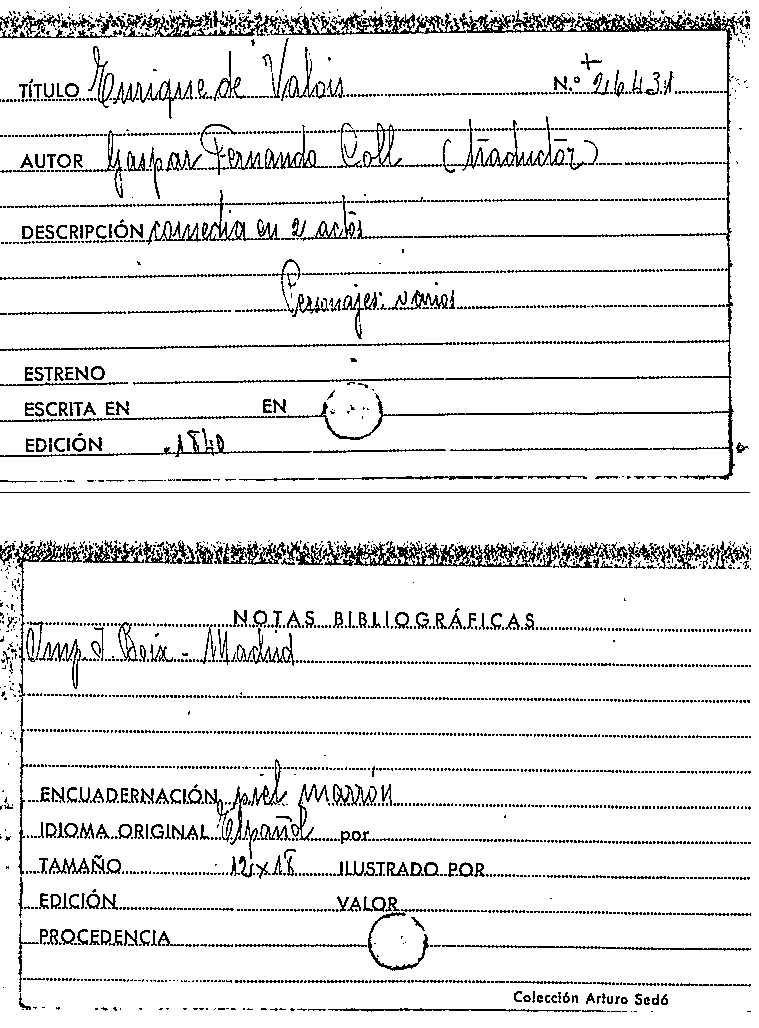 TÍTULO Enrique de Valois N.º + 26431
AUTOR Gaspar Fernando Coll (traductor)
DESCRIPCIÓN comedia en 2 actos
Personajes: varios
ESTRENO
ESCRITA EN EN
EDICIÓN 1840
NOTAS BIBLIOGRÁFICAS
Imp. I. Boix - Madrid
ENCUADERNACIÓN piel marrón
IDIOMA ORIGINAL Español por
TAMAÑO 12x18 ILUSTRADO POR
EDICIÓN VALOR
PROCEDENCIA
Colección Arturo Sedó